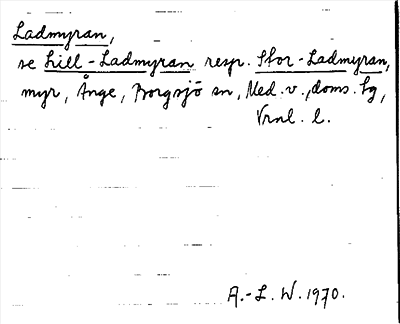 Ladmyran,
se Lill-Ladmyran resp. Stor-Ladmyran,
myr, Ånge, Borgsjö sn, Med. v., doms. tg,
Vrnl. l.
A.-L. W. 1970.